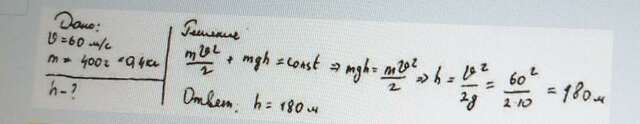 Дано:
v=60 м/с
m = 400г = 0,4кг
h-?
Решение
mv²/2 + mgh = const ⇒ mgh = mv²/2 ⇒ h = v²/2g = 60²/2·10 = 180м
Ответ: h = 180м